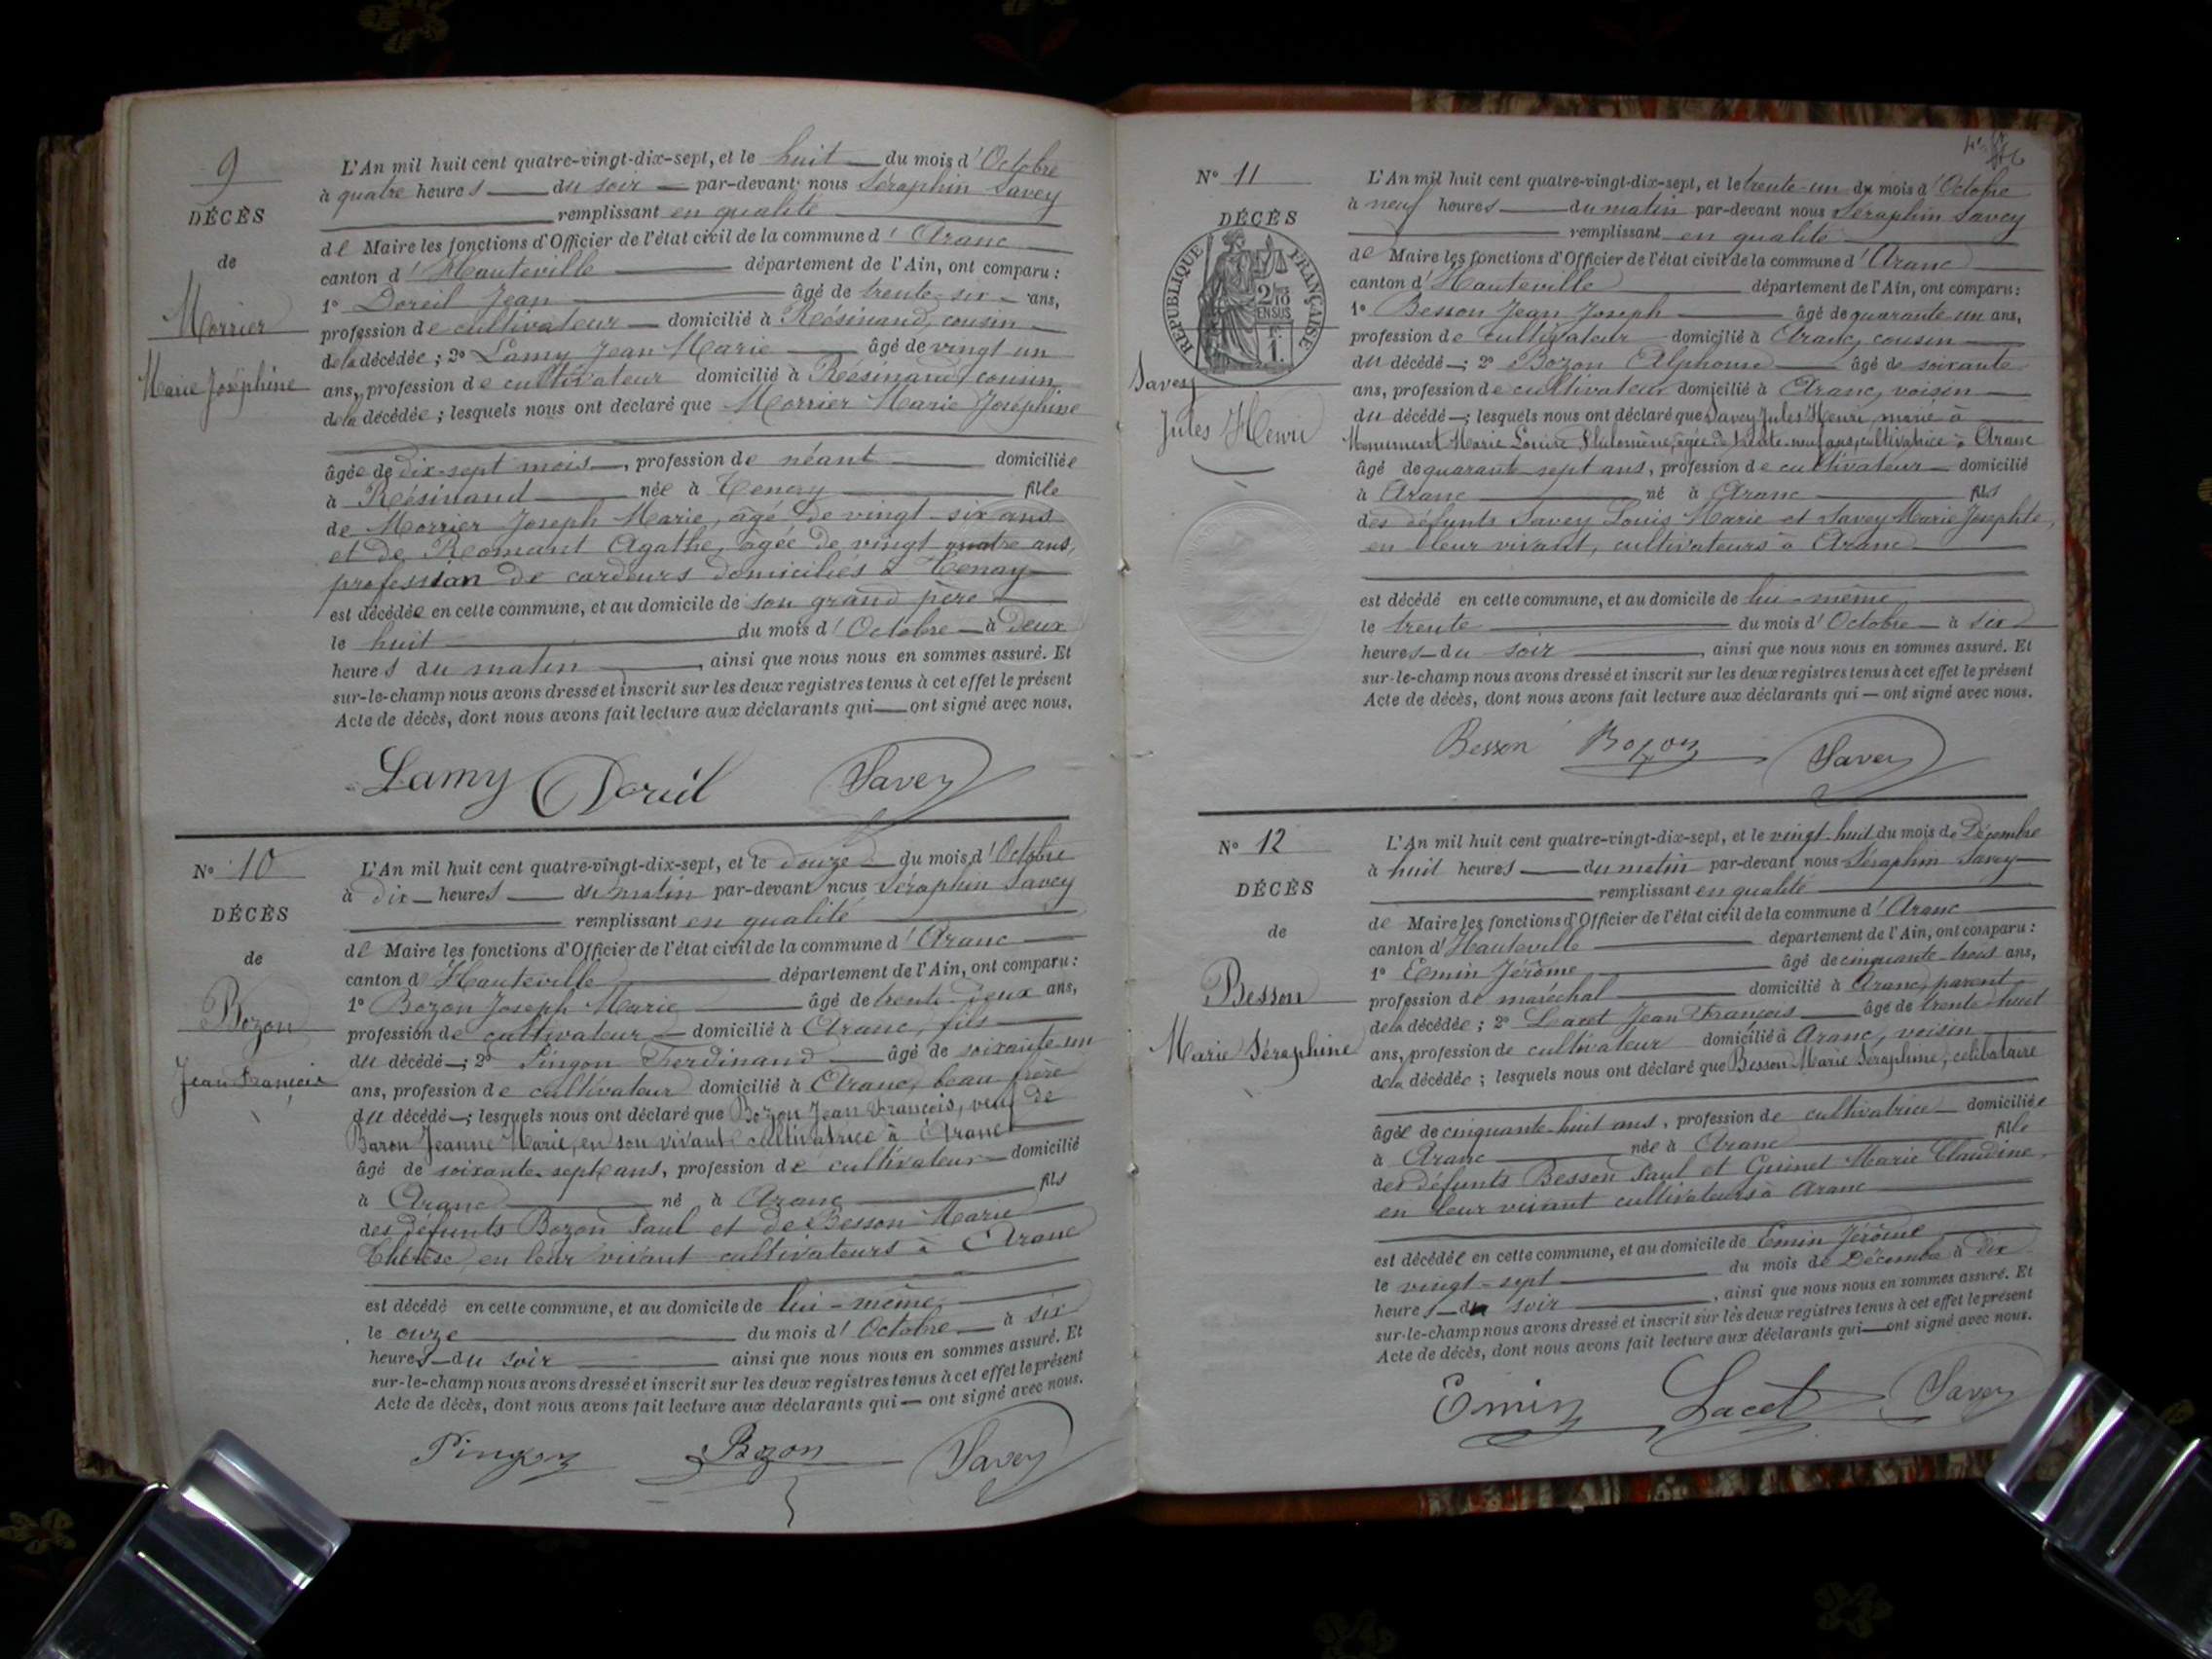 9
DÉCÈS
de
Morrier
Marie Joséphine
L'An mil huit cent quatre-vingt-dix-sept, et le huit du mois d'Octobre
à quatre heures du soir par-devant nous Séraphin Savey
remplissant en qualité
de Maire les fonctions d'Officier de l'état civil de la commune d'Aranc
canton d'Hauteville département de l'Ain, ont comparu :
1° Doreil Jean âgé de trente-six ans,
profession de cultivateur domicilié à Résinand, cousin
de la décédée ; 2° Lamy Jean Marie âgé de vingt un
ans, profession de cultivateur domicilié à Résinand, cousin
de la décédée ; lesquels nous ont déclaré que Morrier Marie Joséphine
âgée de dix-sept mois, profession de néant domiciliée
à Résinand née à Tenay fille
de Morrier Joseph Marie, âgé de vingt-six ans
et de Romant Agathe, âgée de vingt quatre ans,
profession de cardeurs domiciliés à Tenay
est décédée en cette commune, et au domicile de son grand père
le huit du mois d'Octobre à deux
heures du matin, ainsi que nous nous en sommes assuré. Et
sur-le-champ nous avons dressé et inscrit sur les deux registres tenus à cet effet le présent
Acte de décès, dont nous avons fait lecture aux déclarants qui ont signé avec nous.
Lamy Doreil Savey
N° 10
DÉCÈS
de
Bozon
Jean François
L'An mil huit cent quatre-vingt-dix-sept, et le douze du mois d'Octobre
à dix heures du matin par-devant nous Séraphin Savey
remplissant en qualité
de Maire les fonctions d'Officier de l'état civil de la commune d'Aranc
canton d'Hauteville département de l'Ain, ont comparu :
1° Bozon Joseph Marie âgé de trente-deux ans,
profession de cultivateur domicilié à Aranc, fils
du décédé ; 2° Pingon Ferdinand âgé de soixante-un
ans, profession de cultivateur domicilié à Aranc, beau frère
du décédé ; lesquels nous ont déclaré que Bozon Jean François, veuf de
Baron Jeanne Marie, en son vivant cultivatrice à Aranc
âgé de soixante-sept ans, profession de cultivateur domicilié
à Aranc né à Aranc fils
des défunts Bozon Paul et de Besson Marie
Thérèse, en leur vivant cultivateurs à Aranc
est décédé en cette commune, et au domicile de lui-même
le onze du mois d'Octobre à six
heures du soir ainsi que nous nous en sommes assuré. Et
sur-le-champ nous avons dressé et inscrit sur les deux registres tenus à cet effet le présent
Acte de décès, dont nous avons fait lecture aux déclarants qui ont signé avec nous.
Pingon Bozon Savey
N° 11
DÉCÈS
RÉPUBLIQUE FRANÇAISE
2/10
EN SUS
1 F.
Savey
Jules Henri
L'An mil huit cent quatre-vingt-dix-sept, et le trente-un du mois d'Octobre
à neuf heures du matin par-devant nous Séraphin Savey
remplissant en qualité
de Maire les fonctions d'Officier de l'état civil de la commune d'Aranc
canton d'Hauteville département de l'Ain, ont comparu :
1° Besson Jean Joseph âgé de quarante un ans,
profession de cultivateur domicilié à Aranc, cousin
du décédé ; 2° Bozon Alphonse âgé de soixante
ans, profession de cultivateur domicilié à Aranc, voisin
du décédé ; lesquels nous ont déclaré que Savey Jules Henri, marié à
Monument Marie Louise Philomène, âgée de trente-neuf ans, cultivatrice à Aranc
âgé de quarante sept ans, profession de cultivateur domicilié
à Aranc né à Aranc fils
des défunts Savey Louis Marie et Savey Marie Josephte,
en leur vivant, cultivateurs à Aranc
est décédé en cette commune, et au domicile de lui-même
le trente du mois d'Octobre à six
heures du soir, ainsi que nous nous en sommes assuré. Et
sur-le-champ nous avons dressé et inscrit sur les deux registres tenus à cet effet le présent
Acte de décès, dont nous avons fait lecture aux déclarants qui ont signé avec nous.
Besson Bozon Savey
N° 12
DÉCÈS
de
Besson
Marie Séraphine
L'An mil huit cent quatre-vingt-dix-sept, et le vingt-huit du mois de Décembre
à huit heures du matin par-devant nous Séraphin Savey
remplissant en qualité
de Maire les fonctions d'Officier de l'état civil de la commune d'Aranc
canton d'Hauteville département de l'Ain, ont comparu :
1° Emin Jérôme âgé de cinquante-trois ans,
profession de maréchal domicilié à Aranc, parent
de la décédée ; 2° Lacet Jean François âgé de trente-huit
ans, profession de cultivateur domicilié à Aranc, voisin
de la décédée ; lesquels nous ont déclaré que Besson Marie Séraphine, célibataire
âgée de cinquante-huit ans, profession de cultivatrice domiciliée
à Aranc née à Aranc fille
des défunts Besson Paul et Guinet Marie Claudine,
en leur vivant cultivateurs à Aranc
est décédée en cette commune, et au domicile de Emin Jérôme
le vingt-sept du mois de Décembre à dix
heures du soir, ainsi que nous nous en sommes assuré. Et
sur-le-champ nous avons dressé et inscrit sur les deux registres tenus à cet effet le présent
Acte de décès, dont nous avons fait lecture aux déclarants qui ont signé avec nous.
Emin Lacet Savey